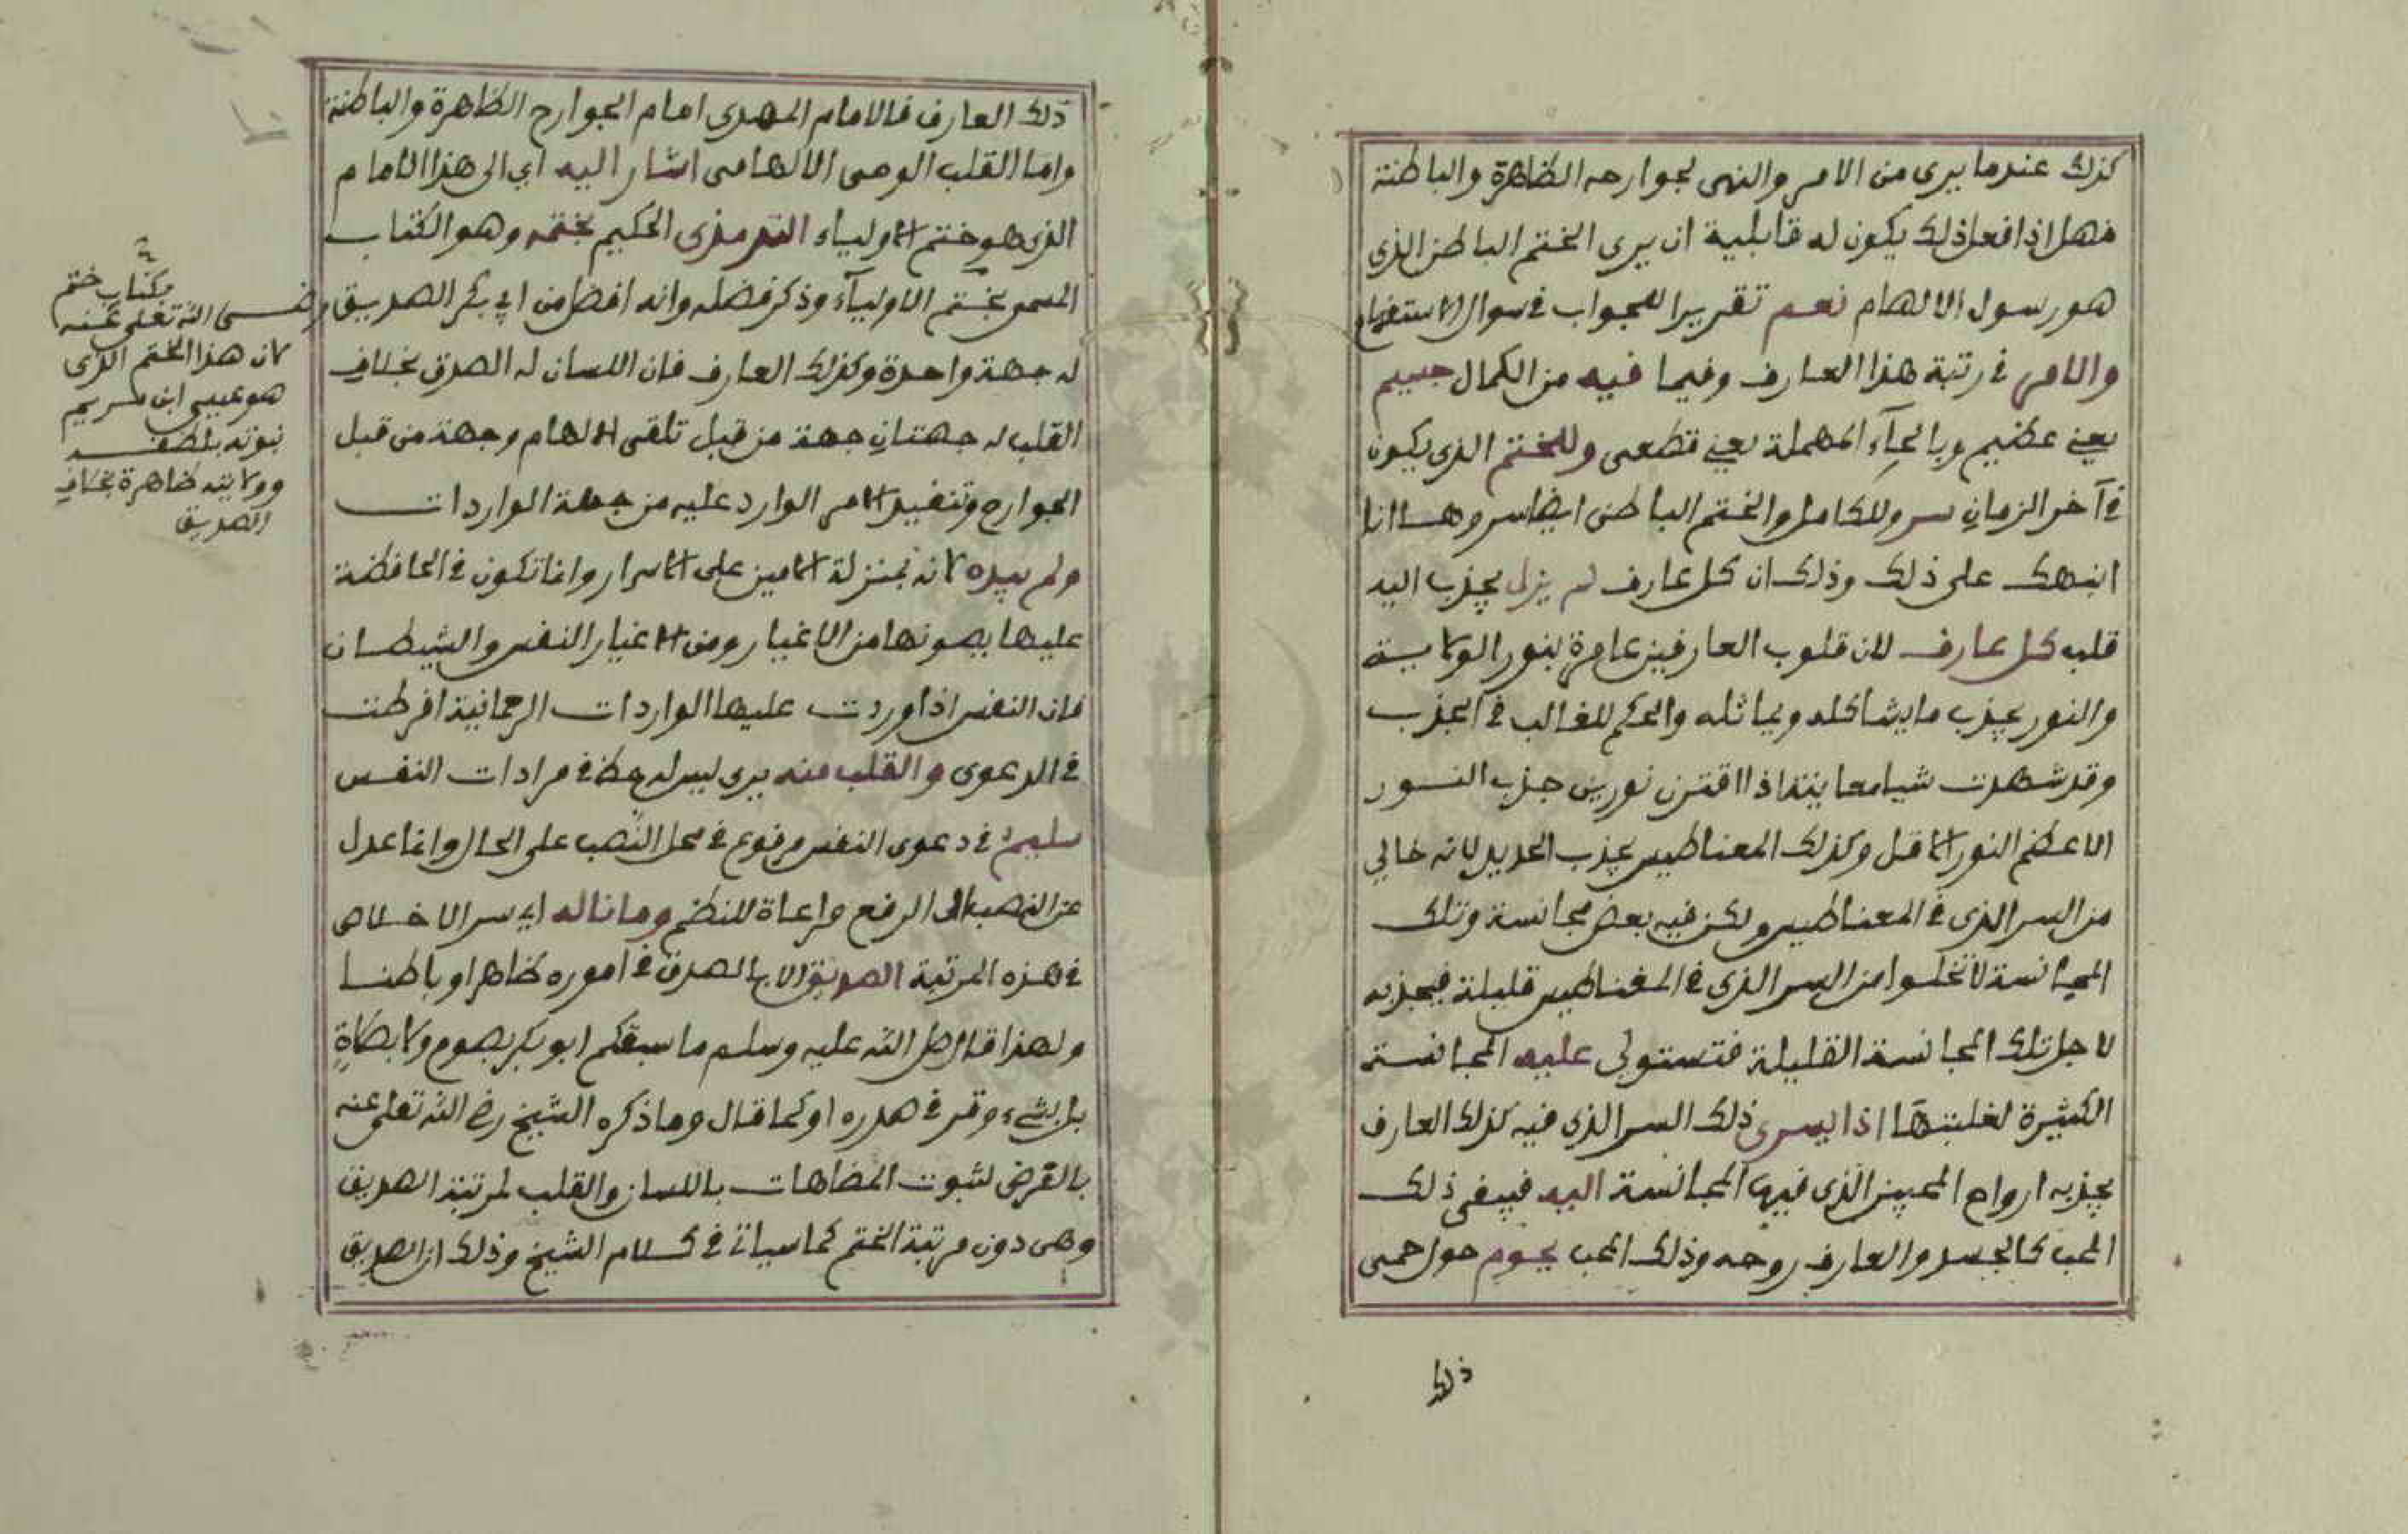 كذلك عندما يرى من الامر والنهى لجوارحه الظاهرة والباطنة
فهل اذا فعل ذلك يكون له قابلية ان يرى الختم الباطن الذي
هو رسول الالهام نعم تقريرا للجواب في سوال الاستفهام
والامر في رتبة هذا العارف وفيما فيه من الكمال جسيم
يعني عظيم وبالحآء المهملة يعني قطعى وللختم الذي يكون
في آخر الزمان سر وللكامل والختم الباطنى ايضا سر وها انا
انبهك على ذلك وذلك ان كل عارف لم يزل يجذب اليه
قلب كل عارف لان قلوب العارفين عامرة بنور الولاية
والنور يجذب ما يشاكله ويماثله والحكم للغالب في الجذب
وقد شهدت شيا معاينة اذا اقترن نورين جذب النور
الاعظم النور الاقل وكذلك المغناطيس يجذب الحديد لانه خالي
من السر الذي في المغناطيس ولكن فيه بعض مجانسة وتلك
المجانسة لا تخلوا من السر الذي في المغناطيس قليلة فيجذبه
لاجل تلك المجانسة القليلة فتستولى عليه المجانسة
الكثيرة لغلبتها اذا يسرى ذلك السر الذي فيه كذلك العارف
يجذبه ارواح المحبين الذي فيها المجانسة اليه فيبقى ذلك
المحب كالجسد والعارف روحه وذلك المحب يحوم حول حمى
ذلك
ذلك العارف فالامام المهدى امام الجوارح الظاهرة والباطنة
واما القلب الوحى الالهامى اشار اليه اي الى هذا الامام
الذى هو ختم الاولياء الترمذى الحكيم بختمه وهو الكتاب
المسمى بختم الاوليآء وذكر فضله وانه افضل من ابي بكر الصديق رضى الله تعلى عنه
له جهة واحدة وكذلك العارف فان اللسان له الصدق بخلاف
القلب له جهتان جهة من قبل تلقى الالهام وجهة من قبل
الجوارح وتنفيد الامر الوارد عليه من جهة الواردات
ولم يبده لانه بمنزلة الامين على الاسرار وانما تكون في الحافظة
عليها يصونها من الاغيار ومن الاغيار النفس والشيطان
فان النفس اذا وردت عليها الواردات الرحمانية افرطت
في الدعوى والقلب منه يرى ليس له حظ في مرادات النفس
سليم في دعوى النفس مرفوع في محل النصب على الحال وانما عدل
عن النصب الى الرفع مراعاة للنظم وما ناله اي سر الاخلاص
في هذه المرتبة الصديق الا بالصدق في اموره ظاهرا وباطنا
ولهذا قال صلى الله عليه وسلم ما سبقكم ابو بكر بصوم ولا بصلاة
بل بشيء وقر في صدره او كما قال وما ذكره الشيخ رضي الله تعلى عنه
بالقرض لثبوت المضاهات باللسان والقلب لمرتبة الصديق
وهى دون مرتبة الختم كما سياتي في كلام الشيخ وذلك ان الصديق
بكتاب ختم
لان هذا الختم الذى
هو عيسى ابن مريم
نبوته
وولايته ظاهرة بخلاف
الصديق